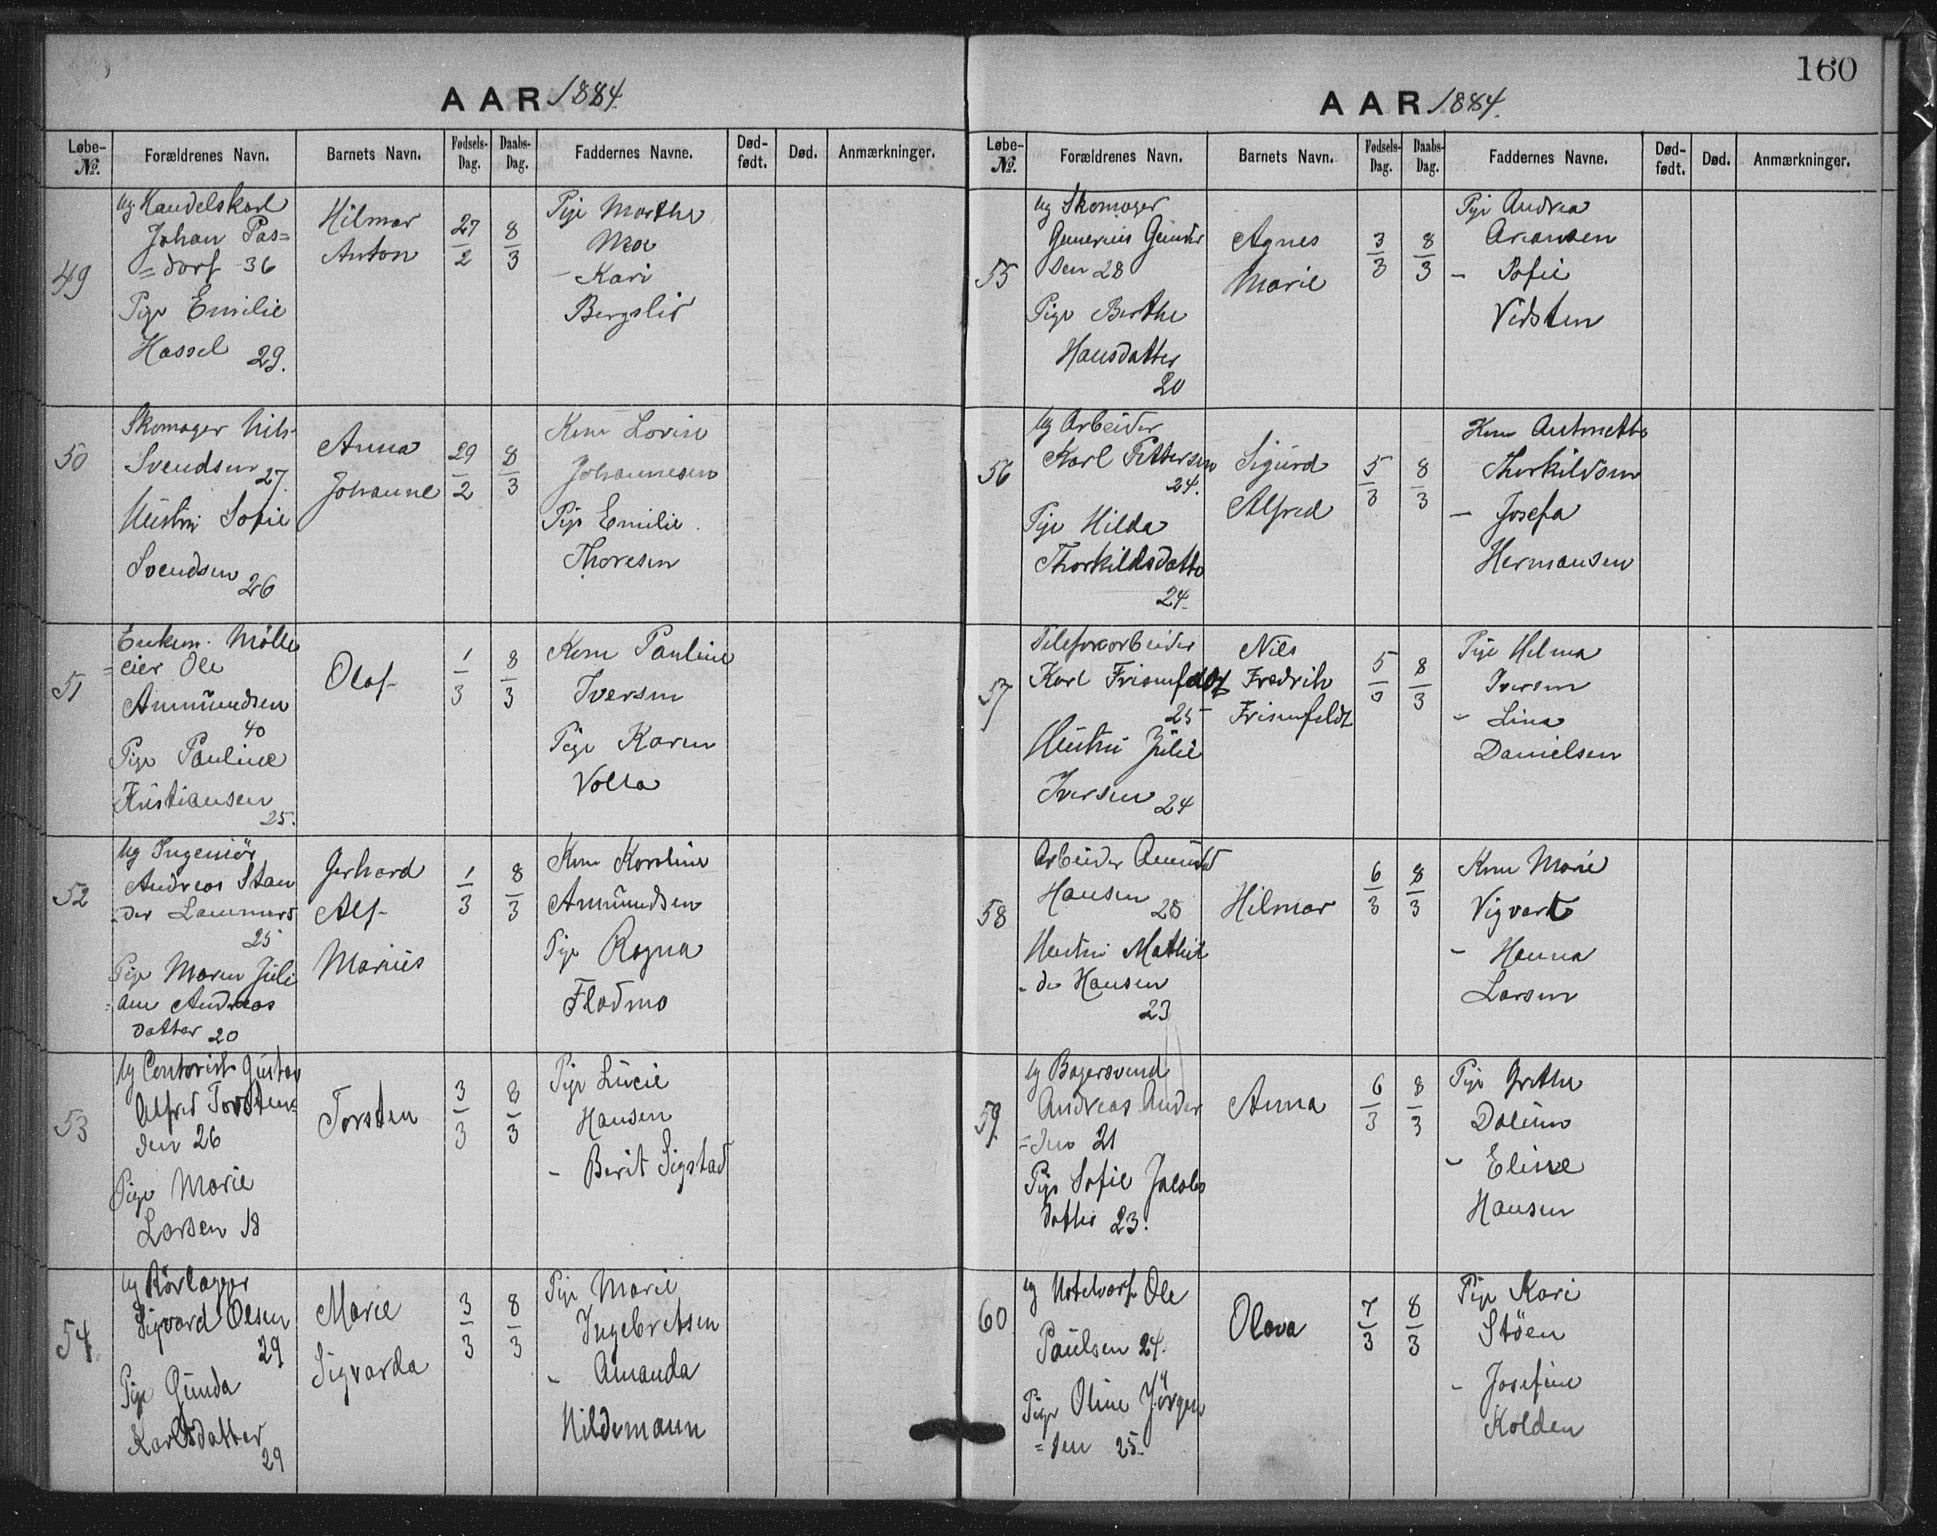 AAR 1884.
Løbe-No. Forældrenes Navn. Barnets Navn. Fødsels-Dag. Daabs-Dag. Faddernes Navne. Død-født. Død. Anmærkninger.
49
Ug. Handelskarl
Johan Pas=
=dorf 36
Pige Emilie
Hassel 29.
Hilmar
Anton
27/2
8/3
Pige Marthe
Moe
– Kari
Bergslid
50
Skomager Nils
Svendsen 27.
Hustru Sofie
Svendsen 26
Anna
Johanne
29/2
8/3
Kone Lovise
Johannesen
Pige Emilie
Thoresen
51
Enkem. Mølle
=eier Ole
Ammundsen
40
Pige Pauline
Kristiansen
25.
Olaf
1/3
8/3
Kone Pauline
Iversen
Pige Karen
Volla
52
Ug Ingeniør
Andreas Stan
=der Lammers
25
Pige Maren Juli
=ane Andreas
datter 20
Gerhard
Alf
Marius
1/3
8/3
Kone Karoline
Ammundsen
Pige Ragna
Flodmo
53
Ug Contorist Gustav
Alfred Torsten=
sen 26
Pige Marie
Larsen 18
Torsten
3/3
8/3
Pige Lucie
Hansen
– Berit Sigstad
54
Ug Rørlægger
Sigvard Olsen
29
Pige Gunda
Karlsdatter
29
Marie
Sigvarda
3/3
8/3
Pige Marie
Ingebretsen
– Amanda
Hildemann
160
AAR 1884.
Løbe-No. Forældrenes Navn. Barnets Navn. Fødsels-Dag. Daabs-Dag. Faddernes Navne. Død-født. Død. Anmærkninger.
55
Ug Skomager
Gunder
sen 28
Pige Berthe
Hansdatter
20
Agnes
Marie
3/3
8/3
Pige Andrea
Aronsen
– Sofie
Vidsten
56
Ug Arbeider
Karl Pettersen
24.
Pige Hilda
Thorkildsdatter
24.
Sigurd
Alfred
5/3
8/3
Kone Antonette
Thorkildsen
– Josefa
Hermansen
57
Telefonarbeider
Karl Frisenfeldt
25
Hustru Julie
Iversen 24
Nils
Fredrik
Frisenfeldt
5/3
8/3
Pige Helma
Iversen
– Lina
Danielsen
58
Arbeider Amund
Hansen 28
Hustru Mathil
=de Hansen
23
Hilmar
6/3
8/3
Kone Marie
Vigvart
– Hanna
Larsen
59
Ug Bagersvend
Andreas Ander
=sen 21
Pige Sofie Jacobs
datter 23.
Anna
6/3
8/3
Pige Grethe
– Eline
Hansen
60
Ug Ole
Paulsen 24.
Pige Oline Jørgen
=sen 25.
Olava
7/3
8/3
Pige Kari
Støen
– Josefine
Kolden